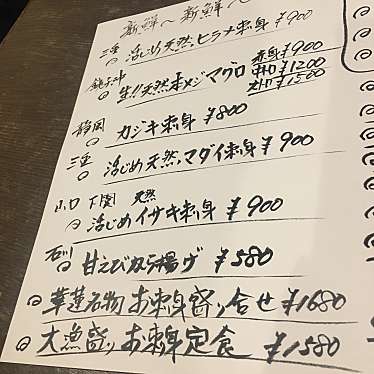 新鮮〜 新鮮〜
三重 活じめ天然ヒラメ刺身 ¥900
銚子沖 生!!天然本メジマグロ 赤身¥900
中トロ¥1200
大トロ¥1500
静岡 カジキ刺身 ¥800
三重 活じめ天然マダイ刺身 ¥900
山口 下関 天然
活じめイサキ刺身 ¥900
石川 甘えび唐揚げ ¥580
華蓮名物 お刺身盛り合せ ¥1680
大漁盛り お刺身定食 ¥1580